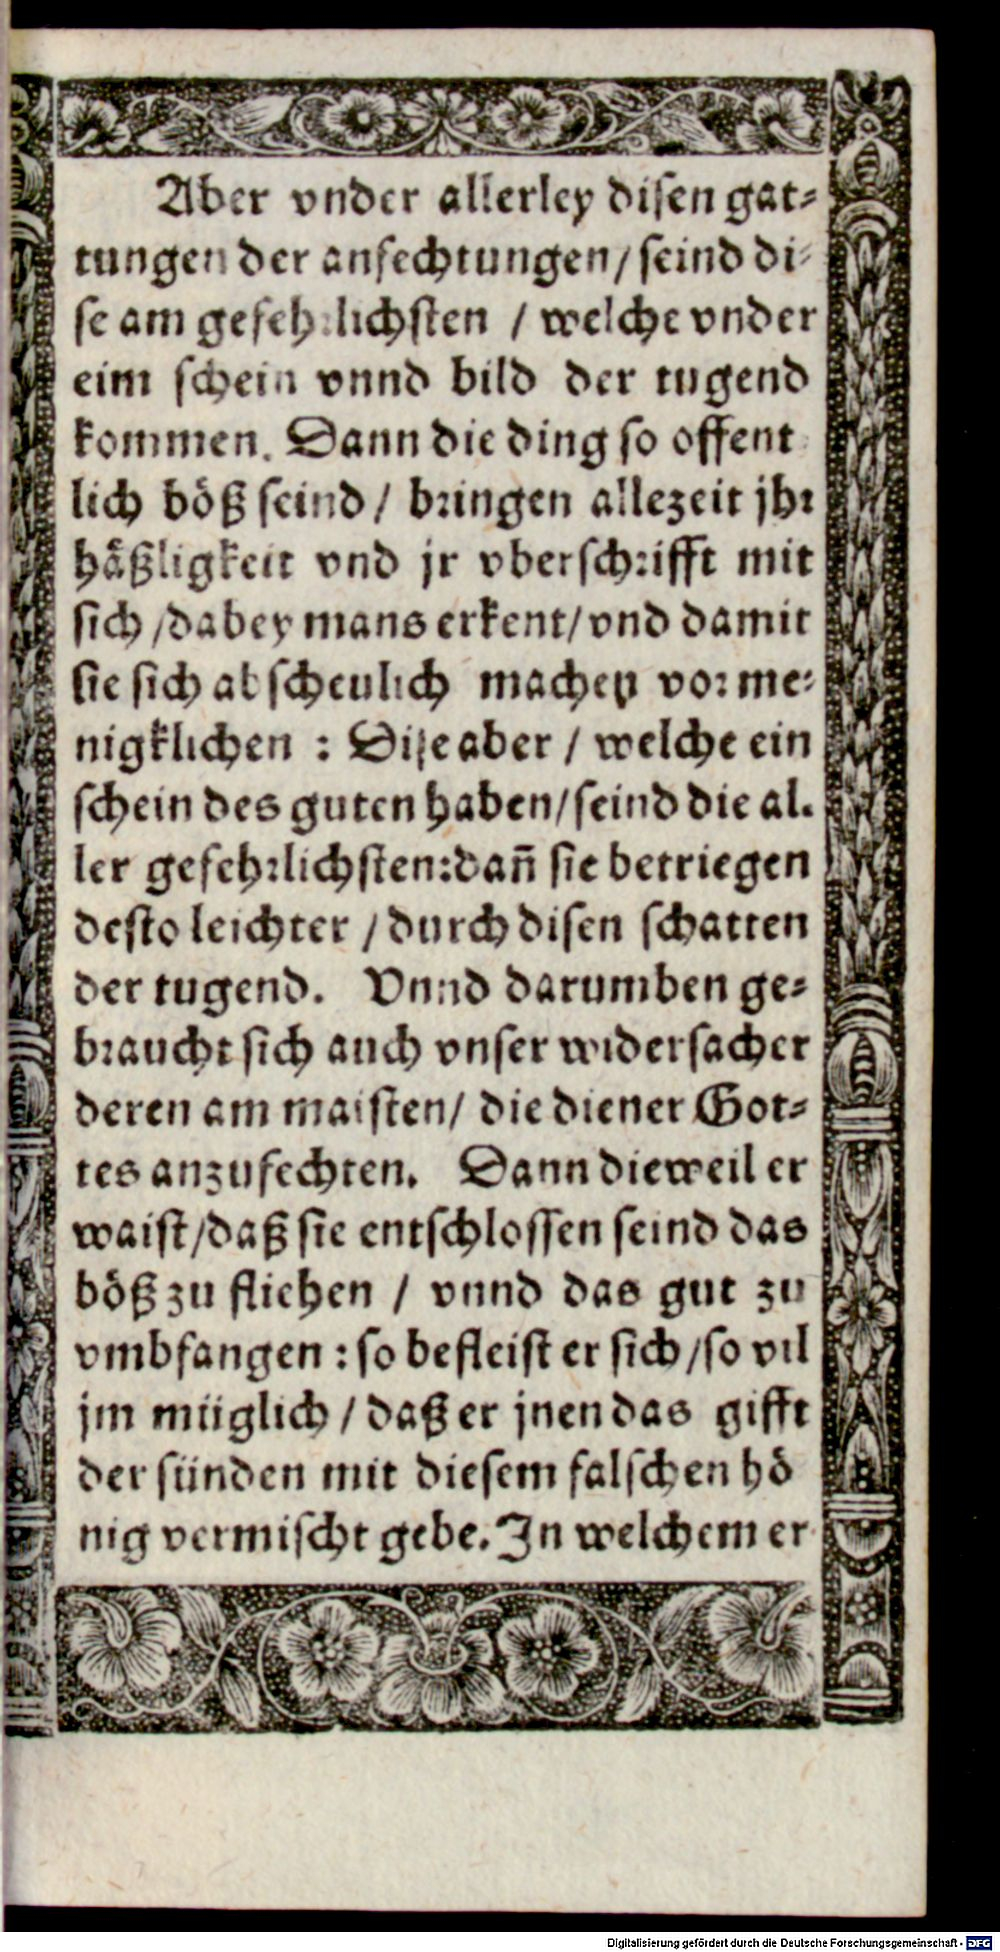 Aber vnder allerley disen gat⸗
tungen der anfechtungen / seind di⸗
se am gefehrlichsten / welche vnder
eim schein vnnd bild der tugend
kommen. Dann die ding so offent
lich böß seind / bringen allezeit jhr
häßligkeit vnd jr vberschrifft mit
sich / dabey mans erkent / vnd damit
sie sich abscheulich machen vor me⸗
nigklichen : Dise aber / welche ein
schein des guten haben / seind die al⸗
ler gefehrlichsten: dañ sie betriegen
desto leichter / durch disen schatten
der tugend. Vnnd darumben ge⸗
braucht sich auch vnser widersacher
deren am maisten / die diener Got⸗
tes anzufechten. Dann dieweil er
waist / daß sie entschlossen seind das
böß zu fliehen / vnnd das gut zu
vmbfangen : so befleist er sich / so vil
jm müglich / daß er jnen das gifft
der sünden mit diesem falschen hö
nig vermischt gebe. In welchem er
Digitalisierung gefördert durch die Deutsche Forschungsgemeinschaft - DFG